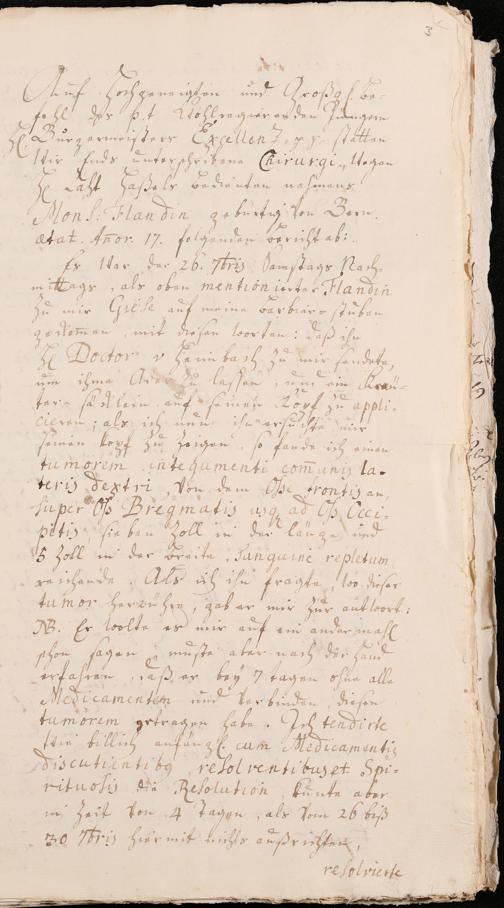 3
Auf Hochgeneigten und Großgl. be-
fehl des p.t. Wohlregierenden Jüngern
H. Burgermeisters Excellenz, p.p. statten
Wir Ends unterschribene Chirurgi, wegen
H. Raht Haßels bedienten nahmens
Mons. Flandin gebürtig von Bern
ætat. Anor. 17. folgenden bericht ab:
Es war der 26. 7bris Samstags Nach-
mittags, als oben mentionierter Flandin
zu mir Giese auf meine barbierstuben
gekommen, mit diesen worten: daß ihn
H. Doctor v Hennbach zu mir sendete,
um ihme Ader zu lassen, und ein Kräu-
ter-säcklein auf seinen Kopf zu appli-
cieren; als ich nun ihn ersuchte mir
seinen kopf zu zeigen, so fande ich einen
tumorem integumenti comunis la-
teris dextri, von dem Osse frontis an,
super Os Bregmatis usq ad Os Occi-
pitis, sieben Zoll in der länge und
5 Zoll in der breite, sanguine repletum
reichende. Als ich ihn fragte, wo dieser
tumor herrühre, gab er mir zur antwort:
NB. Er wolte es mir auf ein andermahl
schon sagen, muste aber nach der hand
erfahren, daß er bey 7 tagen ohne alle
Medicamenten und verbinden diesen
tumorem getragen habe. Ich tendirte
wie billich anfängl. cum Medicamentis
discutientibq resolventibus et Spi-
rituosis die Resolution, kunte aber
in Zeit von 4 Tagen, als vom 26 biß
30 7bris hiermit nichts außrichten,
resolvierte